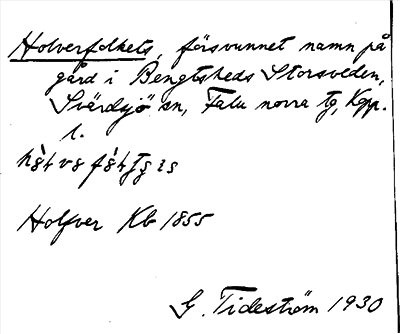 Holverfolkets, försvunnet namn på
gård i Bengtsheds Storsveden,
Svärdsjö sn, Falu norra tg, Kopp.
l.
Holfver Kb 1855
G. Tideström 1930